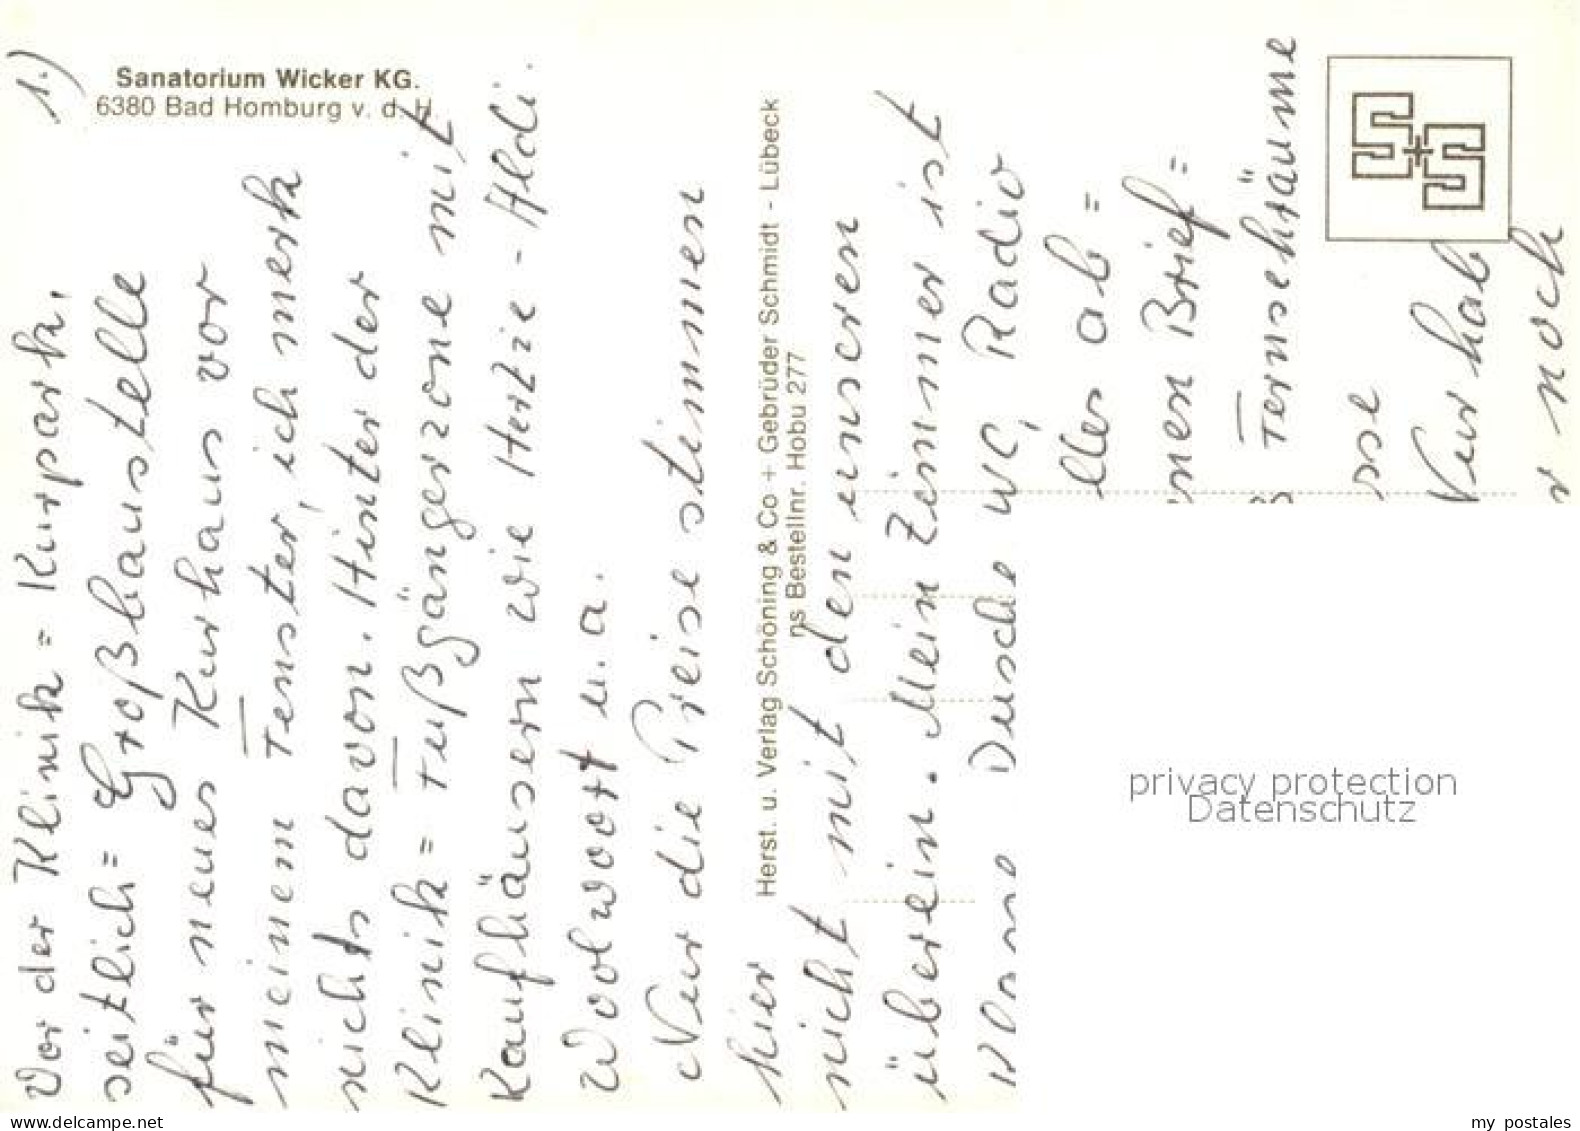 1.)
Sanatorium Wicker KG.
6380 Bad Homburg v. d. H
Vor der Klinik = Kurpark,
seitlich = Großbaustelle
für neues Kurhaus vor
meinem Fenster, ich merk
nichts davon. Hinter der
Klinik = Fußgängerzone mit
Kaufhäusern wie Hertie - Aldi.
Woolwort u. a.
Nur die Preise stimmen
hier
nicht mit den unseren
überein. Mein Zimmer ist
Dusche WC, Radio
ller ab =
nen Brief =
Fernsehräume
sse
Nur hab
r noch
Herst. u. Verlag Schöning & Co + Gebrüder Schmidt - Lübeck
ns Bestellnr. Hobu 277
S+S
privacy protection
Datenschutz
www.delcampe.net
my postales